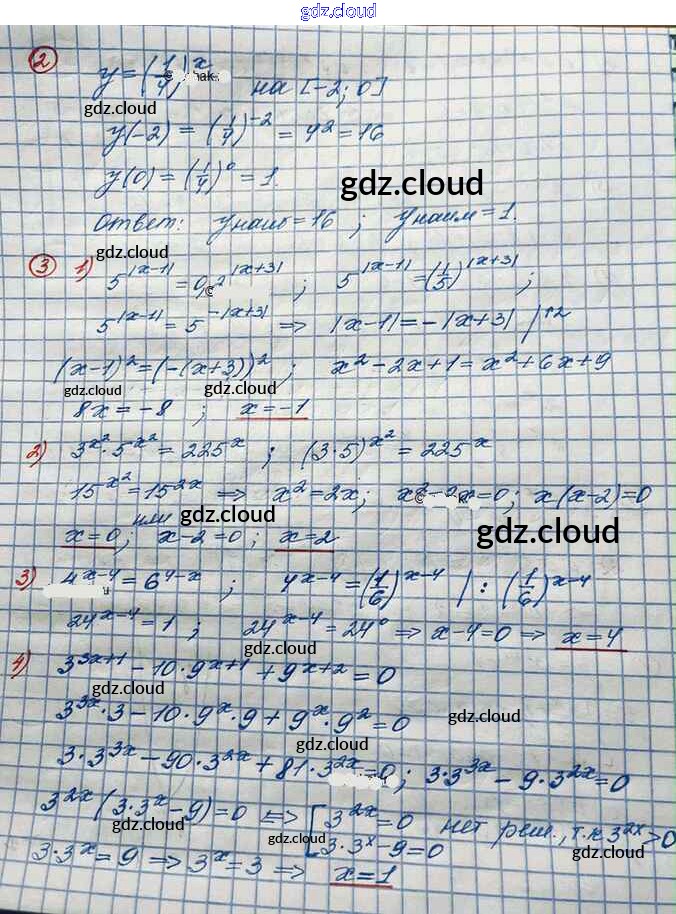 gdz.cloud
② y = (1/4)^x на [-2; 0]
gdz.cloud
y(-2) = (1/4)^{-2} = 4^2 = 16
y(0) = (1/4)^0 = 1.
gdz.cloud
ответ: y наиб = 16 ; y наим = 1.
gdz.cloud
③ 1) 5^{|x-1|} = 0,2^{|x+3|} ; 5^{|x-1|} = (1/5)^{|x+3|} ;
5^{|x-1|} = 5^{-|x+3|} ⇒ |x-1| = -|x+3| |↑2
(x-1)^2 = (-(x+3))^2 ; x^2-2x+1 = x^2+6x+9
gdz.cloud gdz.cloud
8x = -8 ; x = -1
2) 3^{x^2} · 5^{x^2} = 225^x ; (3·5)^{x^2} = 225^x
15^{x^2} = 15^{2x} ⇒ x^2 = 2x; x^2-2x=0; x(x-2)=0
gdz.cloud gdz.cloud
x=0; или x-2=0 ; x=2
3) 4^{x-4} = 6^{4-x} ; 4^{x-4} = (1/6)^{x-4} | : (1/6)^{x-4}
24^{x-4} = 1 ; 24^{x-4} = 24^0 ⇒ x-4=0 ⇒ x=4
gdz.cloud
4) 3^{3x+1} - 10·9^{x+1} + 9^{x+2} = 0
gdz.cloud
3^{3x}·3 - 10·9^x·9 + 9^x·9^2 = 0
gdz.cloud
gdz.cloud
3·3^{3x} - 90·3^{2x} + 81·3^{2x} = 0; 3·3^{3x} - 9·3^{2x} = 0
3^{2x}(3·3^x - 9) = 0 ⇔ [3^{2x} = 0 нет реш., т.к 3^{2x} > 0
3·3^x - 9 = 0
gdz.cloud gdz.cloud gdz.cloud
3·3^x = 9 ⇒ 3^x = 3 ⇒ x = 1